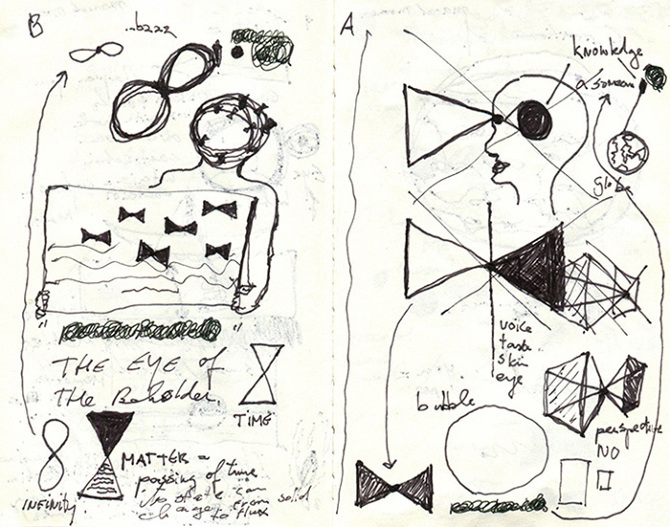 B
..bzzz
THE EYE of
The Beholder
TIME
MATTER =
passing of time
state can
change from solid
to flux
INFINITY
A
knowledge
globe
voice
taste
skin
eye
bubble
perspective
NO